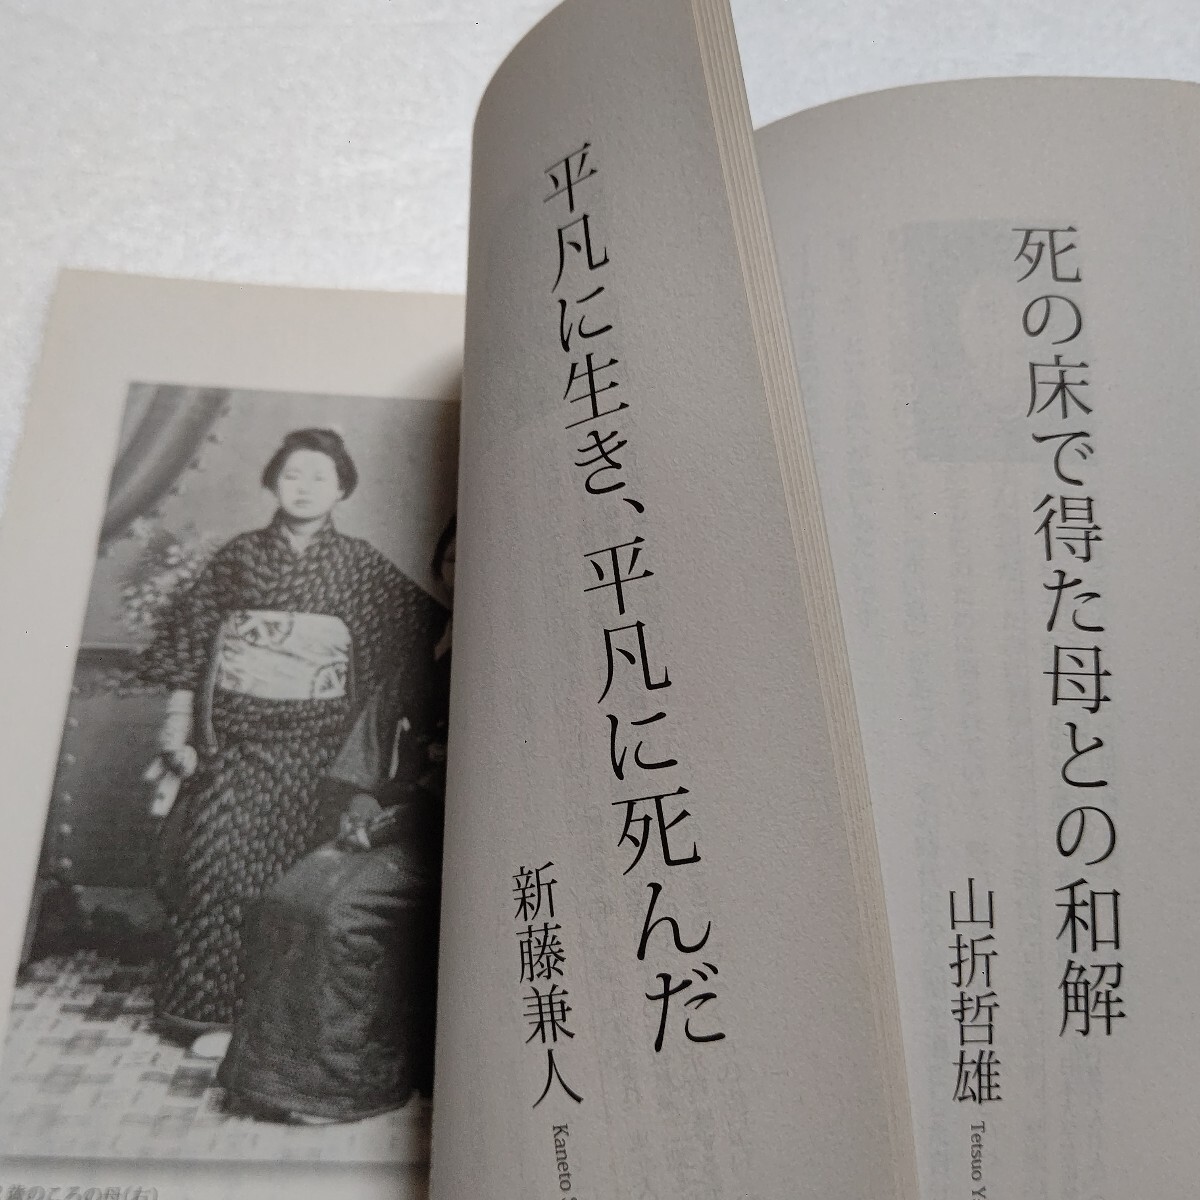 死の床で得た母との和解
山折哲雄
Tetsuo Y
平凡に生き、平凡に死んだ
新藤兼人
Kaneto
歳のころの母(右)